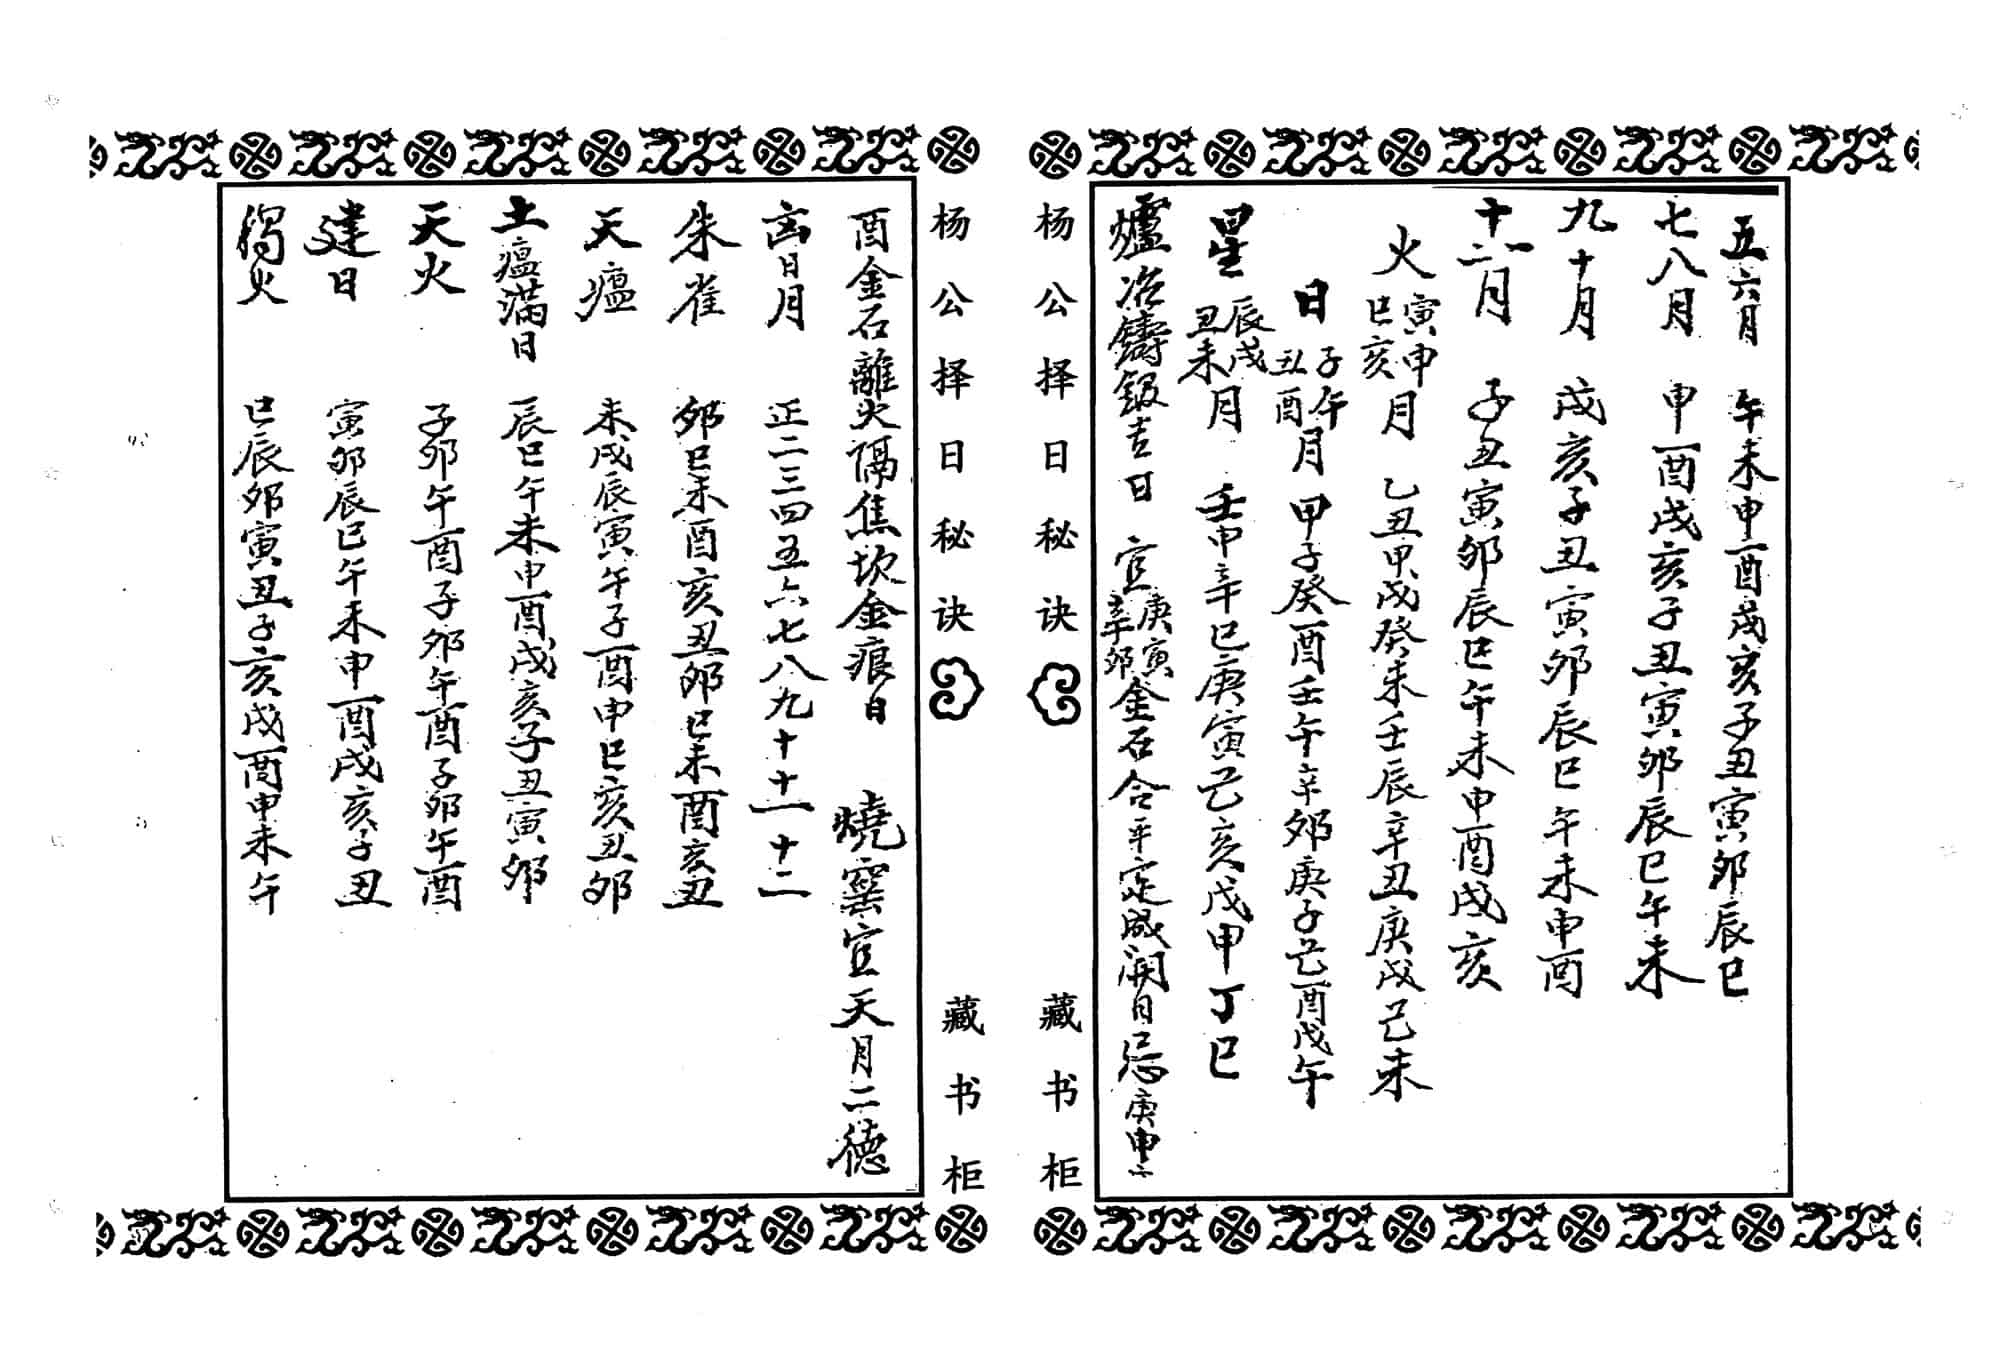 五六月 午未申酉戌亥子丑寅卯辰巳
七八月 申酉戌亥子丑寅卯辰巳午未
九十月 戌亥子丑寅卯辰巳午未申酉
十一十二月 子丑寅卯辰巳午未申酉戌亥
火 寅申巳亥月 乙丑甲戌癸未壬辰辛丑庚戌己未
日 子午丑酉月 甲子癸酉壬午辛卯庚子己酉戊午
星 辰戌丑未月 壬申辛巳庚寅己亥戊申丁巳
爐冶鑄鍛吉日 宜庚寅辛卯金石合平定成開日忌庚申
杨公择日秘诀
藏书柜
杨公择日秘诀
藏书柜
酉金石離火隔焦坎金痕日 燒窯宜天月二德
凶日月 正二三四五六七八九十十一十二
朱雀 卯巳未酉亥丑卯巳未酉亥丑
天瘟 未戌辰寅午子酉申巳亥丑卯
土瘟滿日 辰巳午未申酉戌亥子丑寅卯
天火 子卯午酉子卯午酉子卯午酉
建日 寅卯辰巳午未申酉戌亥子丑
獨火 巳辰卯寅丑子亥戌酉申未午